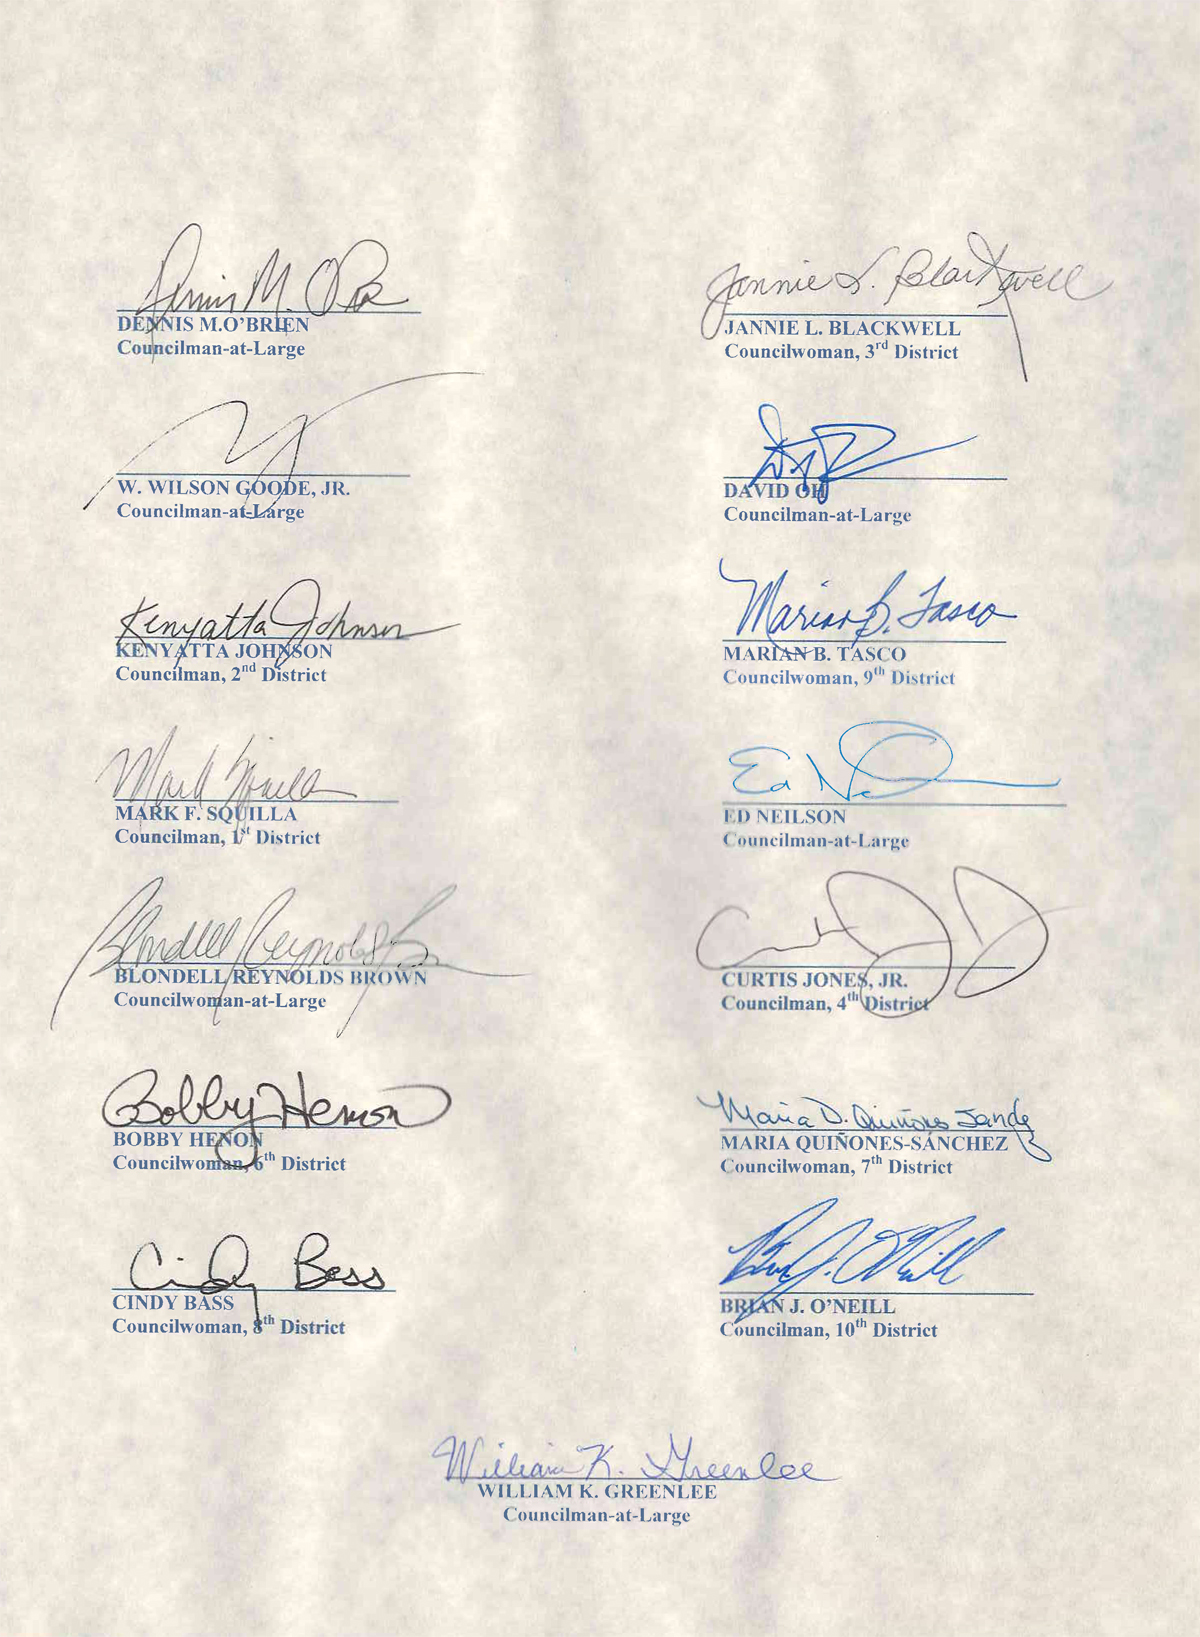 Dennis M. O'B
DENNIS M.O'BRIEN
Councilman-at-Large
W. WILSON GOODE, JR.
Councilman-at-Large
Kenyatta Johnson
KENYATTA JOHNSON
Councilman, 2nd District
Mark Squilla
MARK F. SQUILLA
Councilman, 1st District
Blondell Reynolds Br
BLONDELL REYNOLDS BROWN
Councilwoman-at-Large
Bobby Henon
BOBBY HENON
Councilwoman, 6th District
Cindy Bass
CINDY BASS
Councilwoman, 8th District
Jannie L. Blackwell
JANNIE L. BLACKWELL
Councilwoman, 3rd District
DAVID OH
Councilman-at-Large
Marian B. Tasco
MARIAN B. TASCO
Councilwoman, 9th District
Ed N
ED NEILSON
Councilman-at-Large
CURTIS JONES, JR.
Councilman, 4th District
Maria D. Quiñones Sanchez
MARIA QUIÑONES-SÁNCHEZ
Councilwoman, 7th District
Brian J. O'Neill
BRIAN J. O'NEILL
Councilman, 10th District
William K. Greenlee
WILLIAM K. GREENLEE
Councilman-at-Large